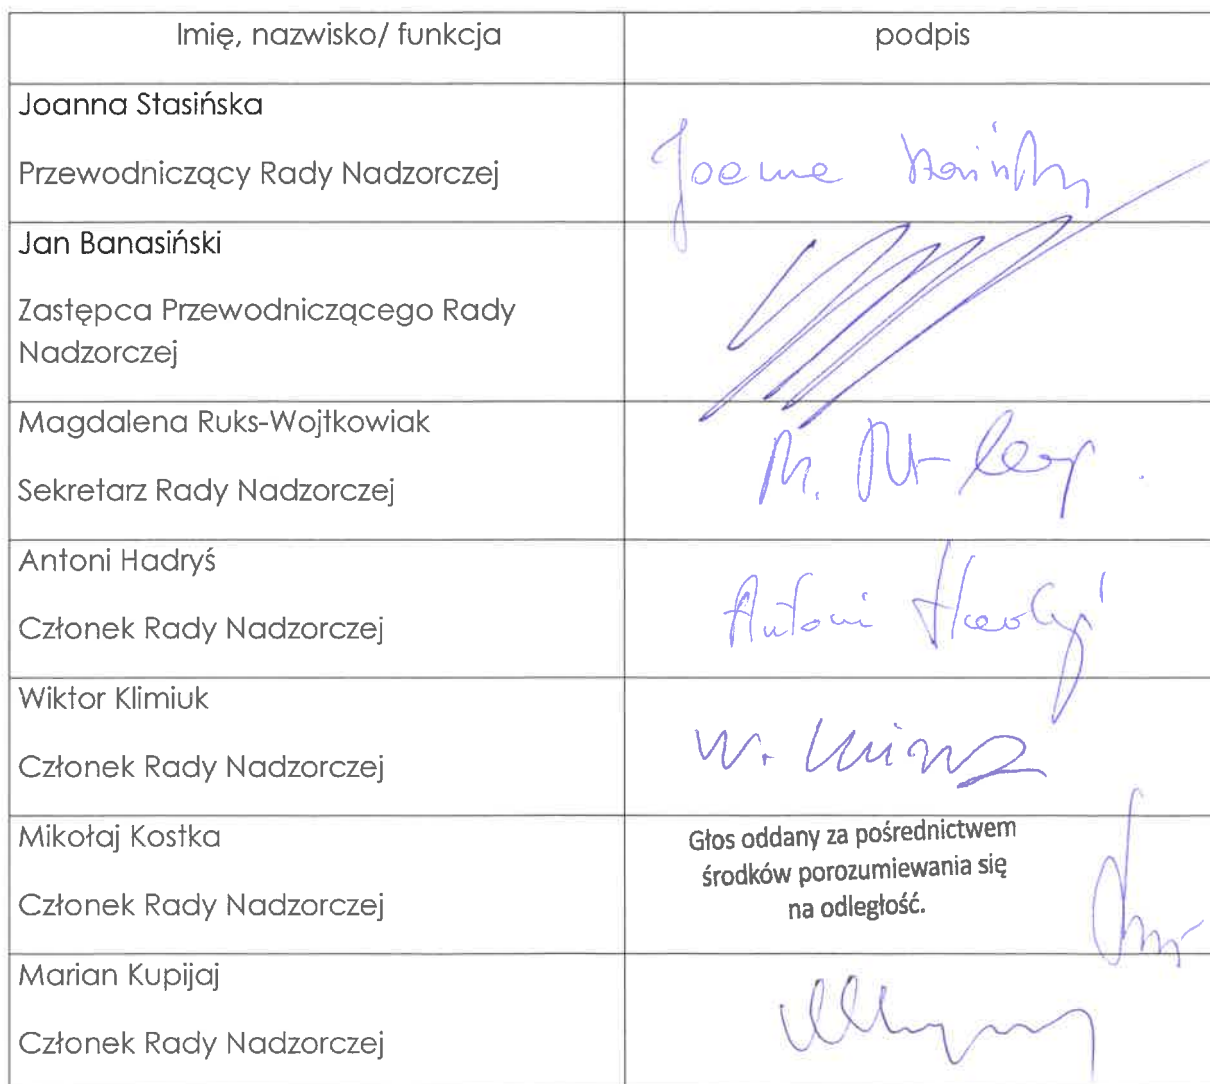 Imię, nazwisko/ funkcja podpis
Joanna Stasińska
Przewodniczący Rady Nadzorczej
Joanna Stasińska
Jan Banasiński
Zastępca Przewodniczącego Rady
Nadzorczej
Magdalena Ruks-Wojtkowiak
Sekretarz Rady Nadzorczej
Antoni Hadryś
Członek Rady Nadzorczej
Antoni Hadryś
Wiktor Klimiuk
Członek Rady Nadzorczej
Mikołaj Kostka
Członek Rady Nadzorczej
Głos oddany za pośrednictwem
środków porozumiewania się
na odległość.
Marian Kupijaj
Członek Rady Nadzorczej